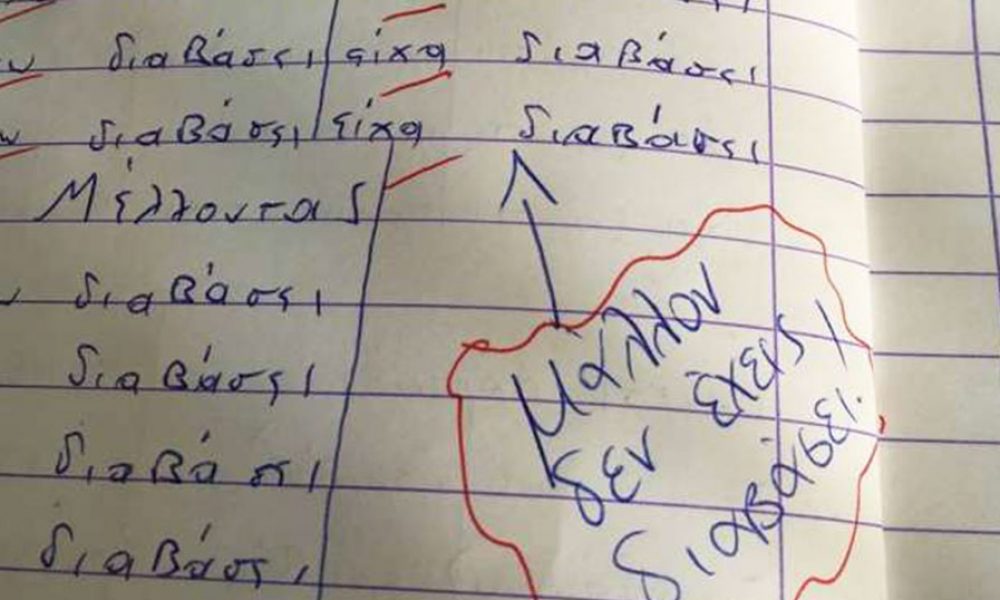 διαβάσει είχα διαβάσει
διαβάσει είχα διαβάσει
Μέλλοντας
διαβάσει
διαβάσει
διαβάσι
διαβάσει
Μάλλον
δεν έχεις
διαβάσει!